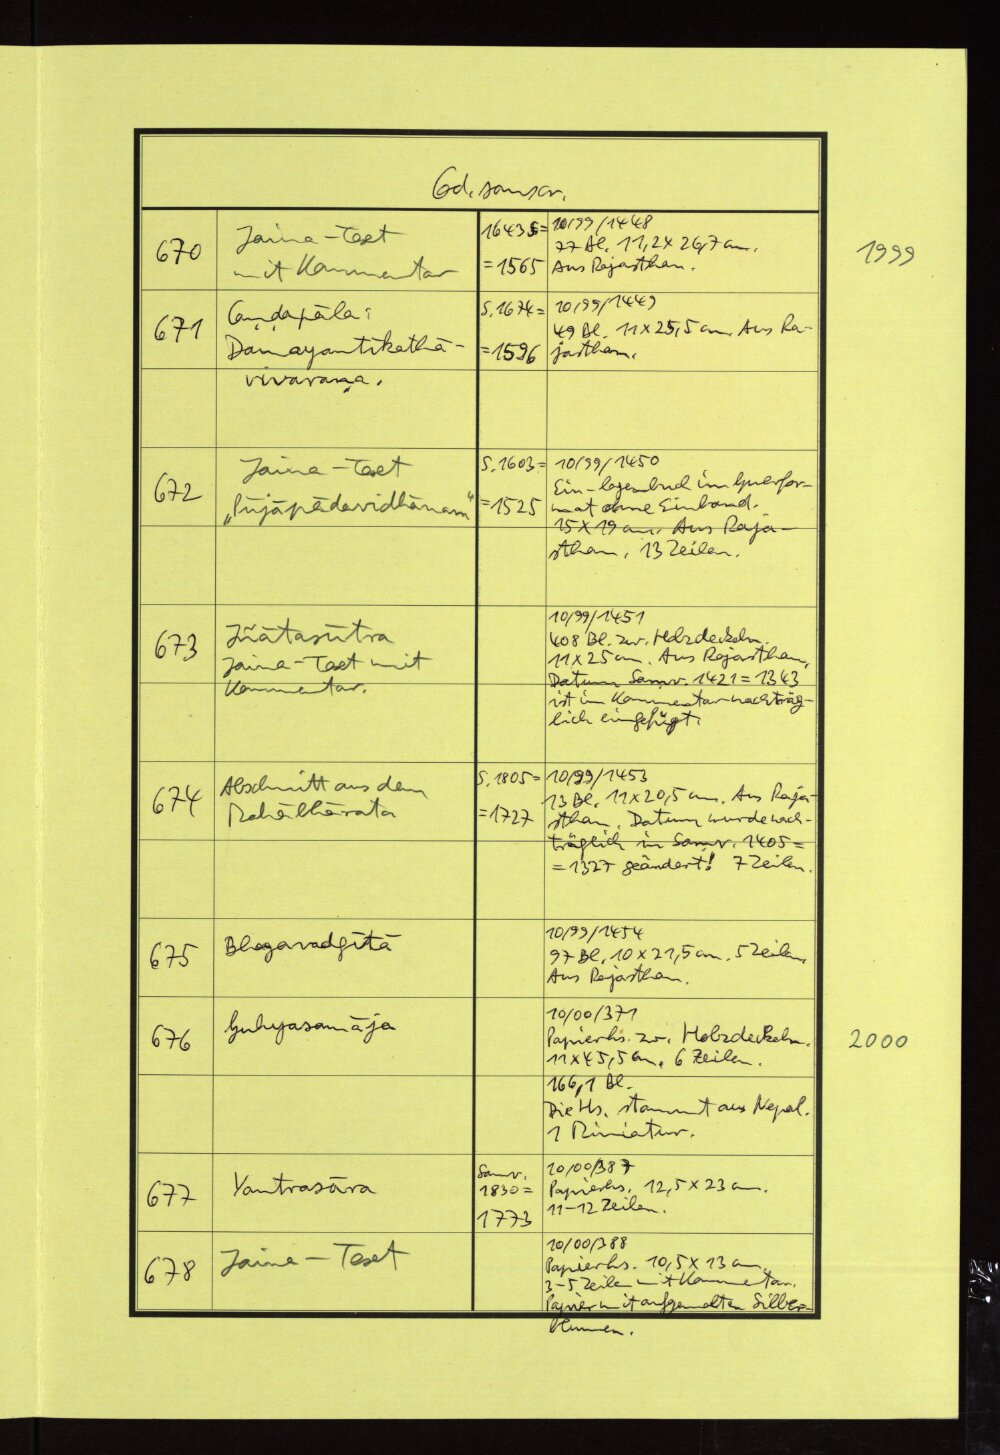 Cod. sanscr.
670
Jaina-Text
mit Kommentar
1643 S=
=1565
10/99/1448
77 Bl. 11,2 x 26,7 cm.
Aus Rajasthan.
1999
671
Caṇḍapāla:
Damayantīkathā-
vivaraṇa.
S. 1674=
=1596
10/99/1449
49 Bl. 11 x 25,5 cm. Aus Ra-
jasthan.
672
Jaina-Text
„Pūjāpādavidhānam“
S. 1603=
=1525
10/99/1450
Ein-lagenbuch im Querfor-
mat ohne Einband.
15 x 19 cm. Aus Raja-
sthan. 13 Zeilen.
673
Jñātasūtra
Jaina-Text mit
Kommentar.
10/99/1451
408 Bl. zw. Holzdeckeln.
11 x 25 cm. Aus Rajasthan.
Datum Samv. 1421 = 1343
ist im Kommentar nachträg-
lich eingefügt.
674
Abschnitt aus dem
Mahābhārata
S. 1805=
=1727
10/99/1453
13 Bl. 11 x 20,5 cm. Aus Raja-
sthan. Datum wurde nach-
träglich in Samv. 1405 =
= 1327 geändert! 7 Zeilen.
675
Bhagavadgītā
10/99/1454
97 Bl. 10 x 21,5 cm. 5 Zeilen.
Aus Rajasthan.
676
Guhyasamāja
10/00/371
Papierhs. zw. Holzdeckeln.
11 x 45,5 cm. 6 Zeilen.
166,1 Bl.
Die Hs. stammt aus Nepal.
1 Miniatur.
2000
677
Yantrasāra
Samv.
1830=
1773
10/00/387
Papierhs. 12,5 x 23 cm.
11-12 Zeilen.
678
Jaina-Text
10/00/388
Papierhs. 10,5 x 13 cm.
3-5 Zeilen mit Kommentar.
Papier mit aufgemalten Silber-
blumen.